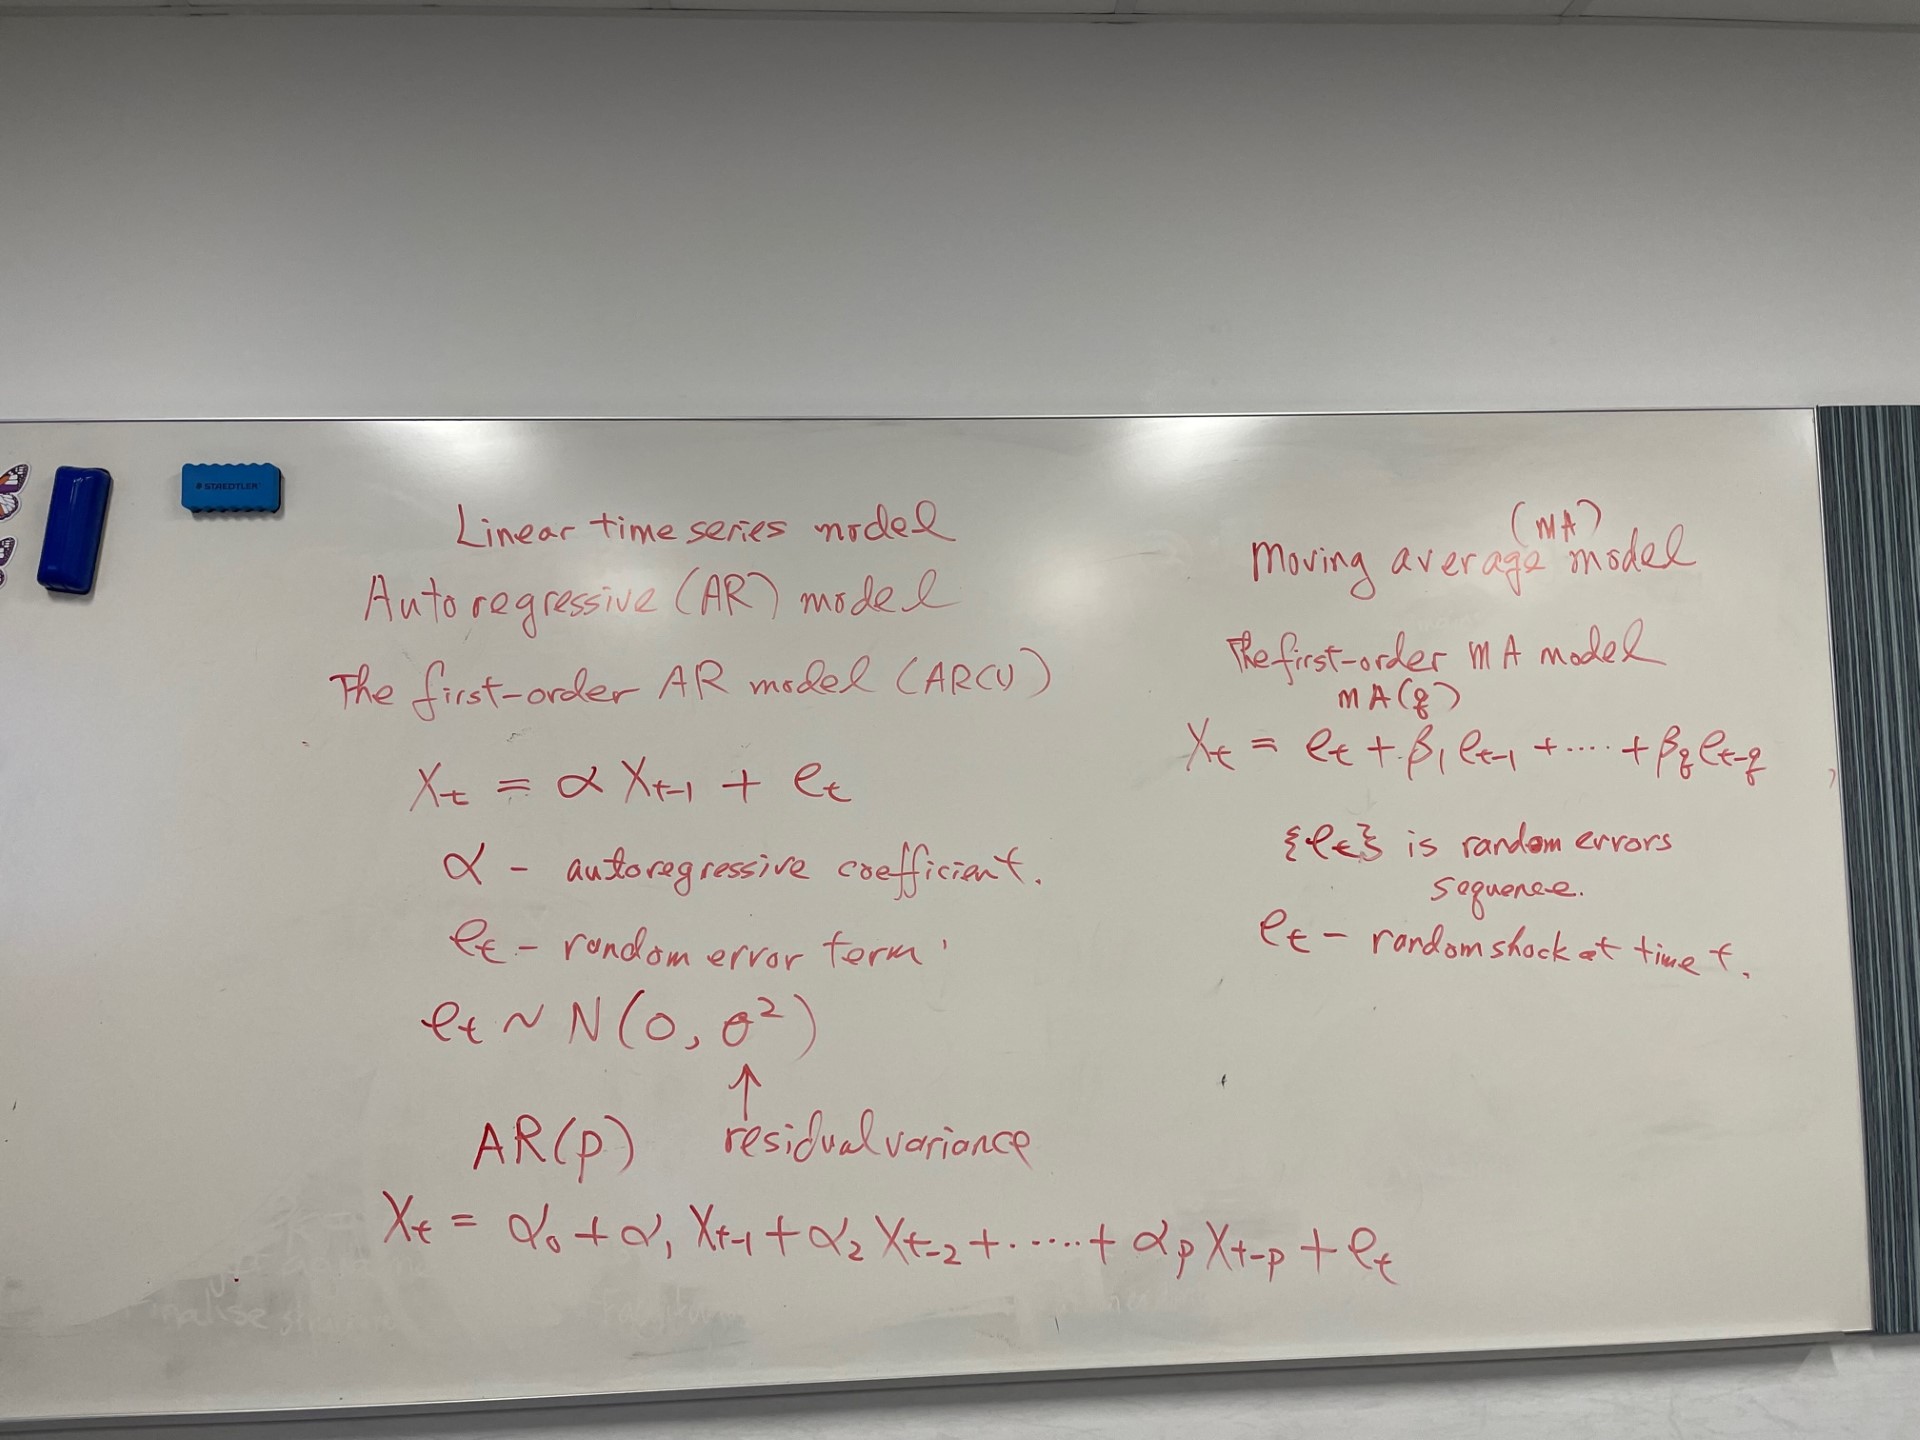 STAEDTLER
Linear time series model
Autoregressive (AR) model
The first-order AR model (AR(1))
Xt = αXt-1 + et
α - autoregressive coefficient.
et - random error term
et ~ N(0, σ²)
↑
AR(p) residual variance
Xt = α₀ + α₁Xt-1 + α₂Xt-2 + ······ + αpXt-p + et
(MA)
Moving average model
The first-order MA model
MA(q)
Xt = et + β₁et-1 + ···· + βqet-q
{et} is random errors
sequence.
et - random shock at time t.